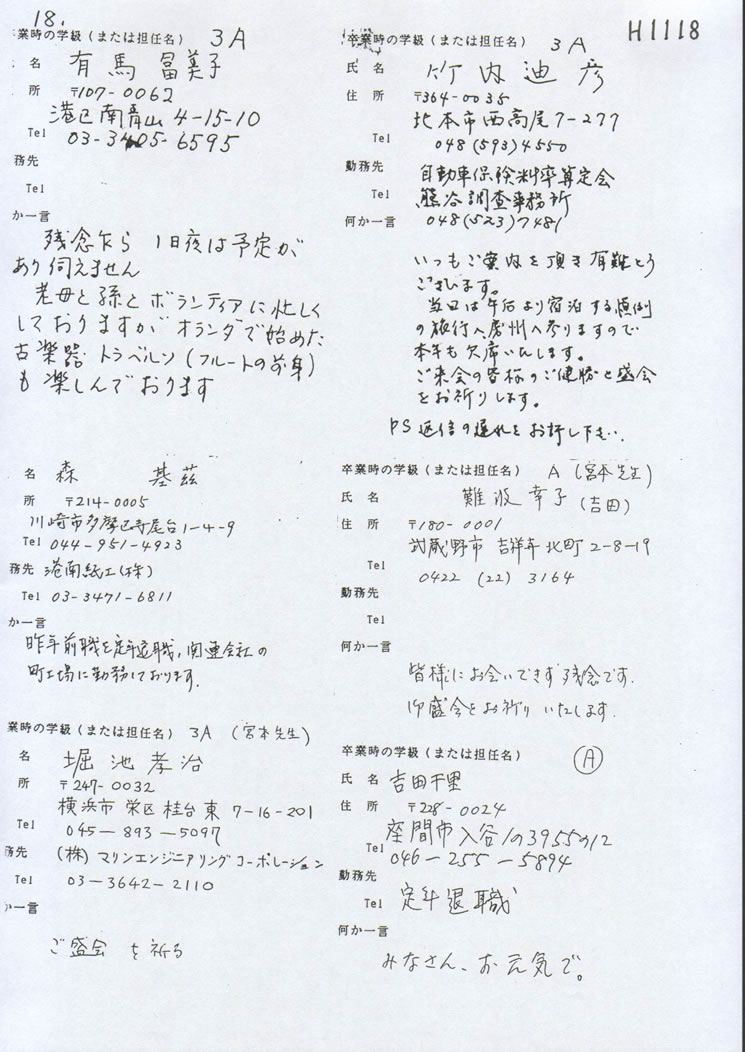 18.
H1118
業時の学級（または担任名） 3A
名 有馬冨美子
所 〒107-0062
港区南青山4-15-10
Tel 03-3405-6595
務先
Tel
か一言
残念乍ら 1日夜は予定が
あり伺えません
老母と孫とボランティアに忙しく
しておりますがオランダで始めた
古楽器 トラベルソ（フルートの前身）
も楽しんでおります
卒業時の学級（または担任名） 3A
氏名 竹内迪彦
住所 〒364-0035
北本市西高尾7-277
Tel 048(593)4550
勤務先 自動車保険料率算定会
Tel 熊谷調査事務所
何か一言 048(523)7481
いつもご案内を頂き有難とう
ございます。
当日は午后より宿泊する恒例
の旅行へ房州へ参りますので
本年も欠席いたします。
ご来会の皆様のご健勝と盛会
をお祈りします。
PS 返信の遅れをお許し下さい．
名 森 基茲
所 〒214-0005
川崎市多摩区寺尾台1-4-9
Tel 044-951-4923
務先 港南紙工(株)
Tel 03-3471-6811
か一言
昨年前職を定年退職，関連会社の
町工場に勤務しております．
卒業時の学級（または担任名） A （宮本先生）
氏名 難波幸子（吉田）
住所 〒180-0001
武蔵野市 吉祥寺北町2-8-19
Tel
0422 (22) 3164
勤務先
Tel
何か一言
皆様にお会いできず残念です．
御盛会をお祈りいたします．
業時の学級（または担任名） 3A （宮本先生）
名 堀池孝治
所 〒247-0032
横浜市 栄区 桂台東 7-16-201
Tel 045-893-5097
務先 （株）マリンエンジニアリングコーポレーション
Tel 03-3642-2110
か一言
ご盛会を祈る
卒業時の学級（または担任名） Ⓐ
氏名 吉田千里
住所 〒228-0024
座間市入谷1の3955の12
Tel 046-255-5894
勤務先
Tel 定年退職
何か一言
みなさん、お元気で。